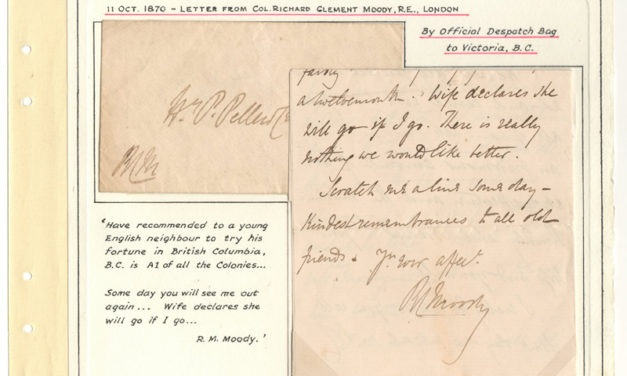 11 OCT. 1870 – LETTER FROM COL. RICHARD CLEMENT MOODY, R.E., LONDON
By Official Despatch Bag
to Victoria, B.C.
W. P. Pellew
RCM
a twelvemonth. Wife declares she
will go if I go. There is really
nothing we would like better.
Scratch me a line some day –
Kindest remembrances to all old
friends.
RCMoody
'Have recommended to a young
English neighbour to try his
fortune in British Columbia,
B.C. is A1 of all the Colonies...
Some day you will see me out
again... Wife declares she
will go if I go...
R. M. Moody.'